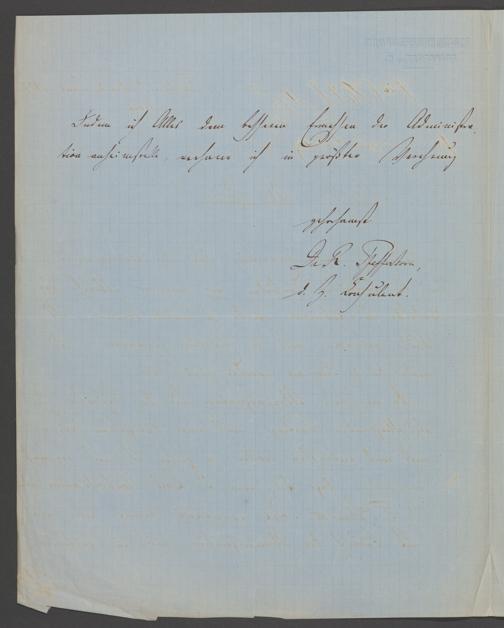 Indem ich Alles dem besseren Ermessen der Administra-
tion anheimstelle, verharre ich in größter Verehrung
gehorsamst
Dr. R.
d. Z. Consulent.